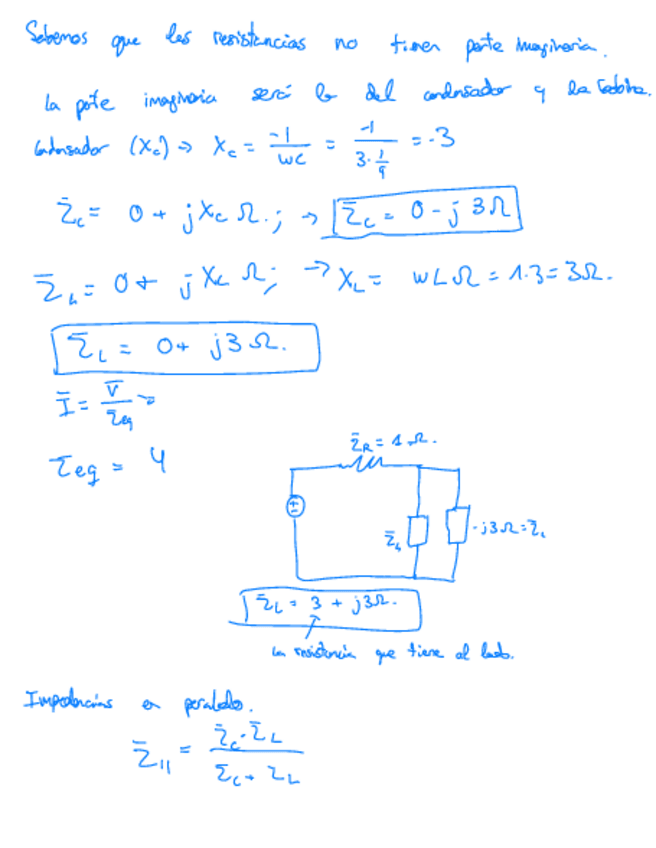 Sabemos que las resistencias no tienen parte imaginaria.
La parte imaginaria será la del condensador y la bobina.
Condensador (Xc) → Xc = -1/wC = -1/(3·1/9) = -3
Z̄c = 0 + jXc Ω.; → Z̄c = 0 - j 3Ω
Z̄L = 0 + jXL Ω; → XL = wLΩ = 1·3 = 3Ω.
Z̄L = 0 + j3Ω.
Ī = V̄/Z̄eq →
Z̄eq = 4
Z̄R = 1Ω.
Z̄L
-j3Ω = Z̄c
Z̄L = 3 + j3Ω.
La resistencia que tiene al lado.
Impedancias en paralelo.
Z̄11 = Z̄c·Z̄L / Z̄c + Z̄L